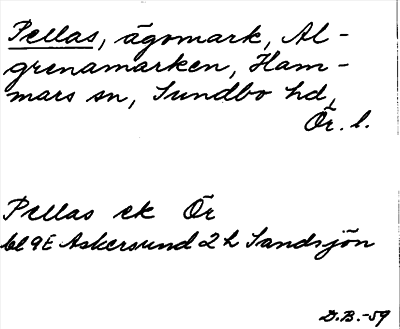 Pellas, ägomark, Al-
grenamarken, Ham-
mars sn, Sundbo hd,
Ör. l.
Pellas ek Ör
bl 9E Askersund 2 h Sandsjön
D.B.-59